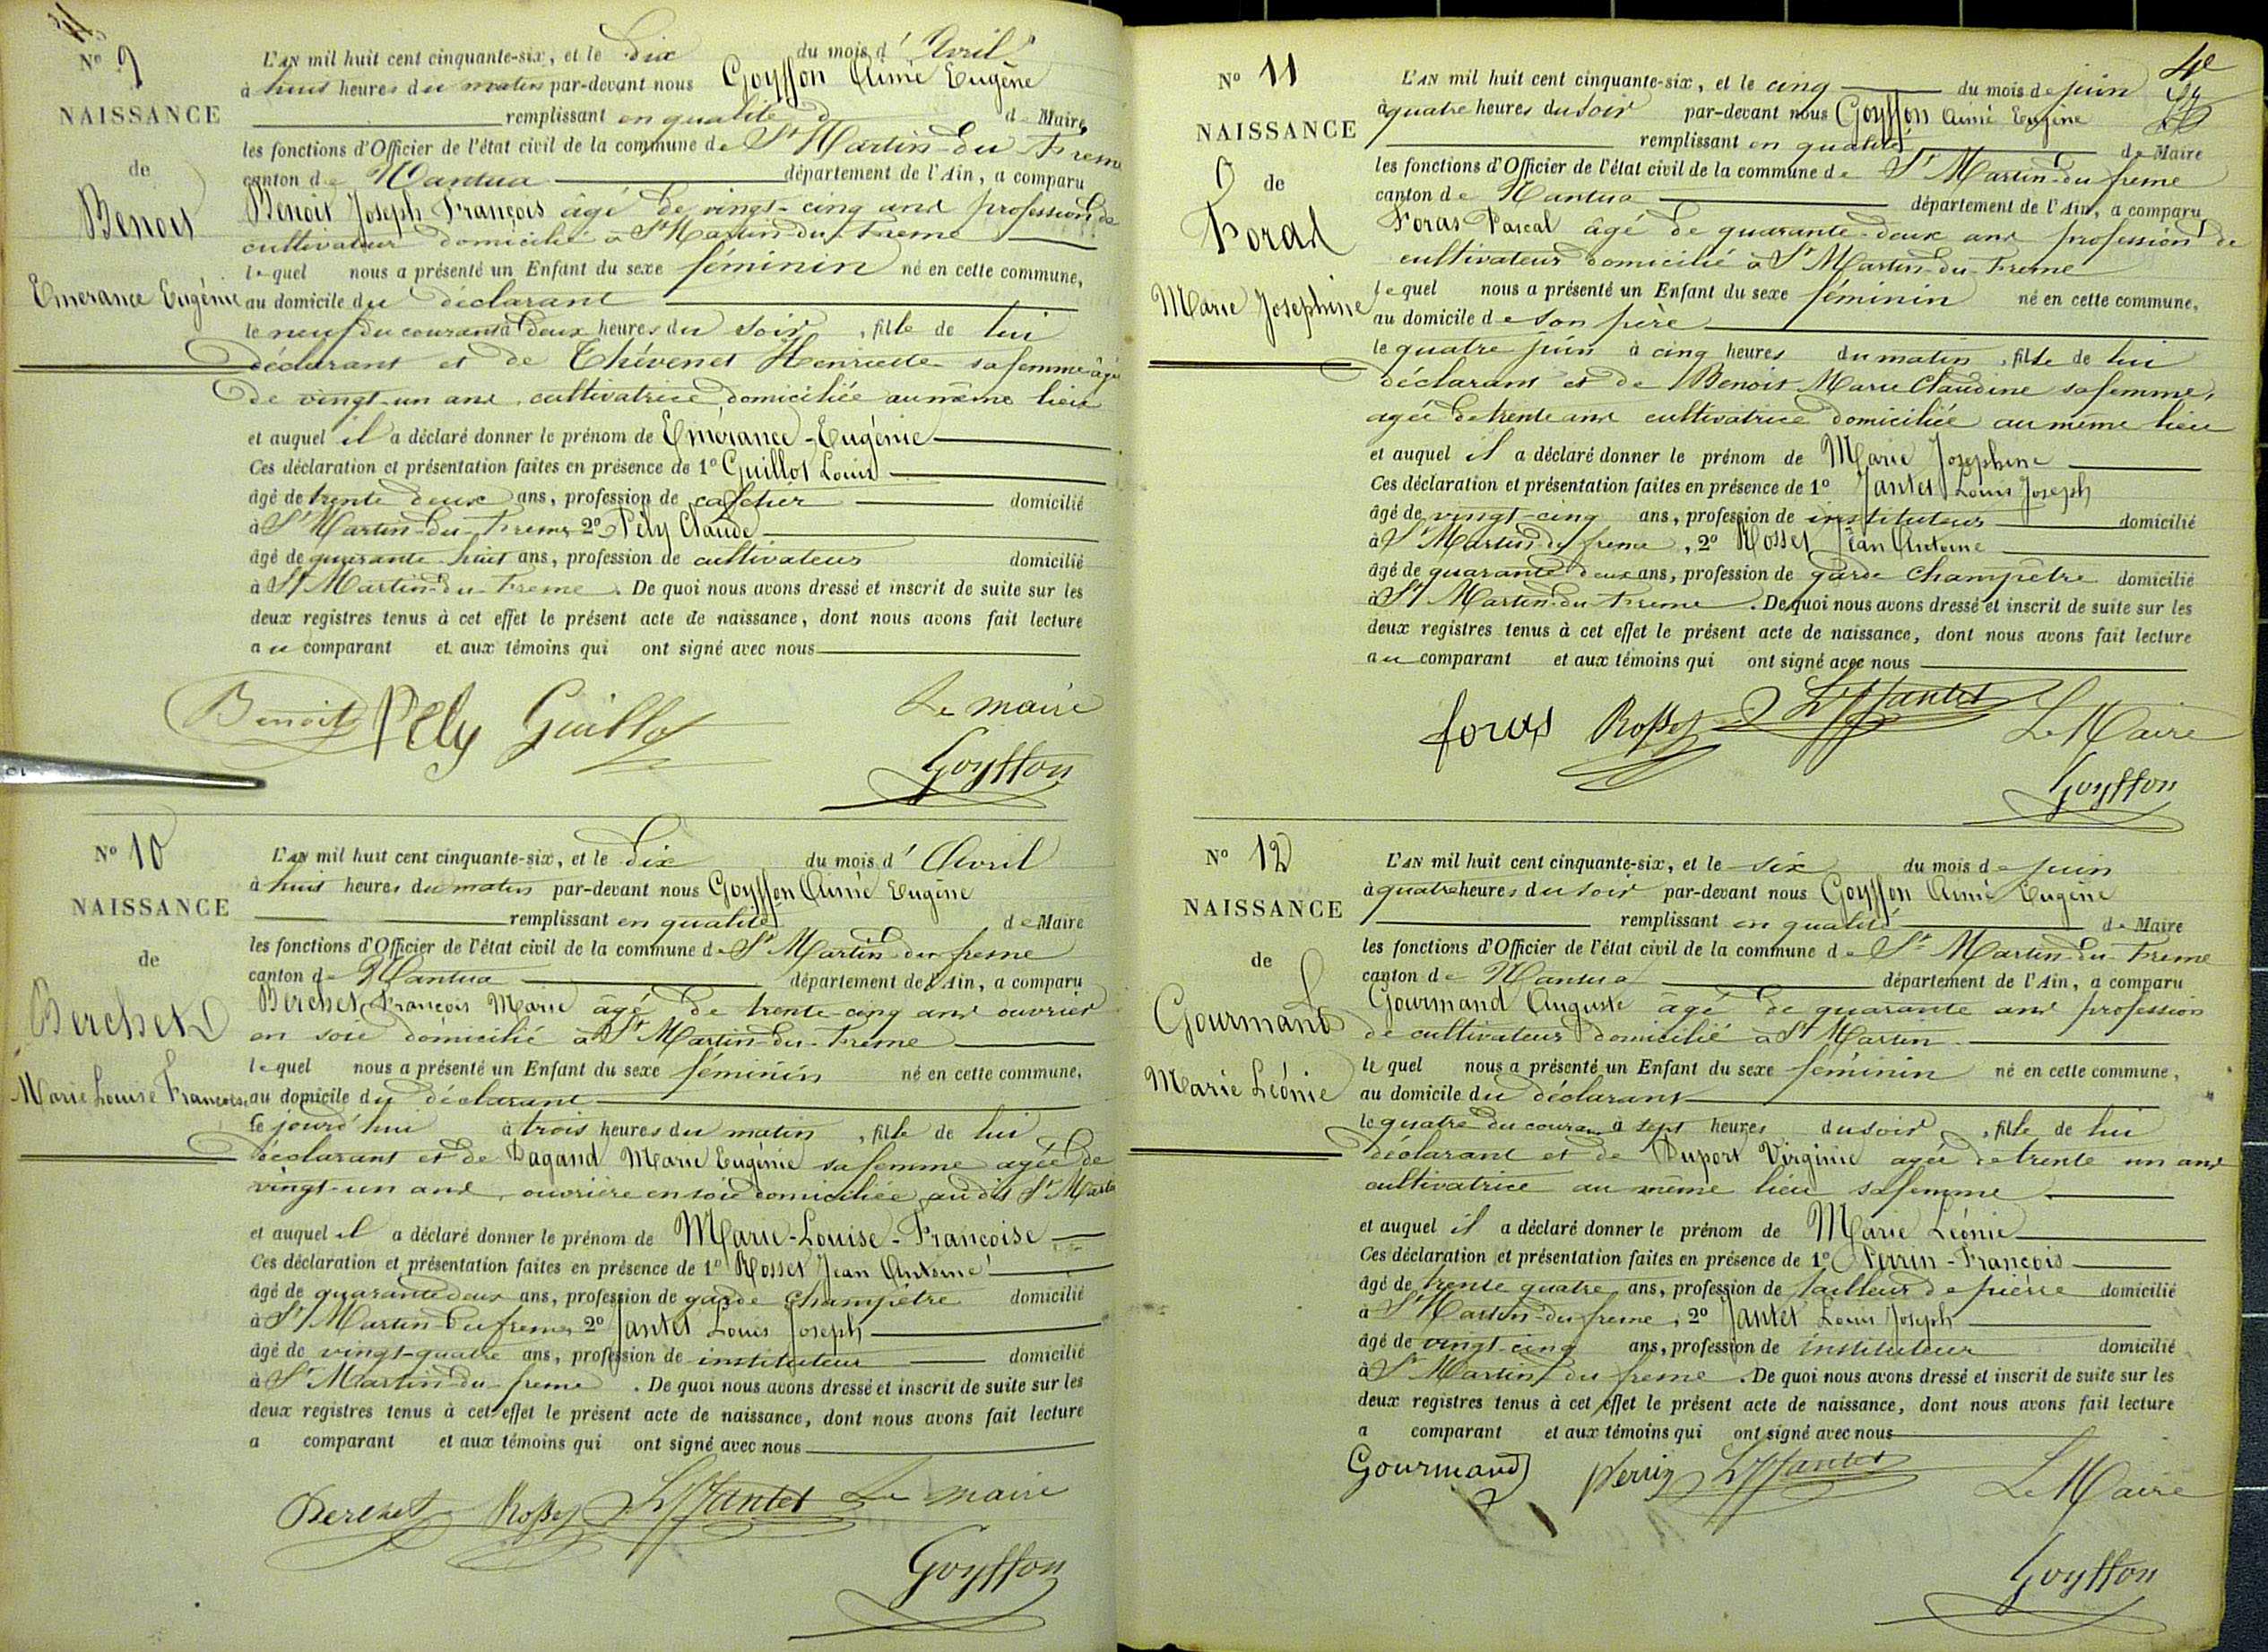 Nº 9
NAISSANCE
de
Benoit
Emerance Eugénie
L'AN mil huit cent cinquante-six, et le Dix du mois d'Avril
à huit heures du matin par-devant nous Goyffon Aimé Eugène
remplissant en qualité de Maire
les fonctions d'Officier de l'état civil de la commune de St Martin-du-Fresne
canton de Nantua département de l'Ain, a comparu
Benoit Joseph François âgé de vingt-cinq ans profession de
cultivateur domicilié à St Martin-du-Fresne
lequel nous a présenté un Enfant du sexe féminin né en cette commune,
au domicile du déclarant
le neuf du courant à deux heures du soir, fille de lui
déclarant et de Thévenet Henriette sa femme âgée
de vingt-un ans, cultivatrice domiciliée au même lieu
et auquel il a déclaré donner le prénom de Emérance-Eugénie
Ces déclaration et présentation faites en présence de 1º Guillot Louis
âgé de trente deux ans, profession de cafetier domicilié
à St Martin-du-Fresne, 2º Pély Claude
âgé de quarante-huit ans, profession de cultivateur domicilié
à St Martin-du-Fresne. De quoi nous avons dressé et inscrit de suite sur les
deux registres tenus à cet effet le présent acte de naissance, dont nous avons fait lecture
au comparant et aux témoins qui ont signé avec nous
Benoit Pely Guillot Le maire
Goyffon
Nº 10
NAISSANCE
de
Berchet
Marie Louise Françoise
L'AN mil huit cent cinquante-six, et le Dix du mois d'Avril
à huit heures du matin par-devant nous Goyffon Aimé Eugène
remplissant en qualité de Maire
les fonctions d'Officier de l'état civil de la commune de St Martin du fresne
canton de Nantua département de l'Ain, a comparu
Berchet François Marie âgé de trente-cinq ans ouvrier
en soie domicilié à St Martin-du-Fresne
lequel nous a présenté un Enfant du sexe féminin né en cette commune,
au domicile du déclarant
le jourd'hui à trois heures du matin, fille de lui
déclarant et de Dagand Marie Eugénie sa femme agée de
vingt-un ans, ouvrière en soie domiciliée au dit St Martin
et auquel il a déclaré donner le prénom de Marie-Louise-Francoise
Ces déclaration et présentation faites en présence de 1º Rosset Jean Antoine
âgé de quarante deux ans, profession de garde champêtre domicilié
à St Martin-du fresne, 2º Jantet Louis Joseph
âgé de vingt-quatre ans, profession de instituteur domicilié
à St Martin-du-fresne. De quoi nous avons dressé et inscrit de suite sur les
deux registres tenus à cet effet le présent acte de naissance, dont nous avons fait lecture
a comparant et aux témoins qui ont signé avec nous
Berchet Rosset LJJantet Le maire
Goyffon
Nº 11
NAISSANCE
de
Foras
Marie Josephine
L'AN mil huit cent cinquante-six, et le cinq du mois de juin
à quatre heures du soir par-devant nous Goyffon Aimé Eugène
remplissant en qualité de Maire
les fonctions d'Officier de l'état civil de la commune de St Martin-du-fresne
canton de Nantua département de l'Ain, a comparu
Foras Pascal âgé de quarante-deux ans profession de
cultivateur domicilié à St Martin-du-Fresne
lequel nous a présenté un Enfant du sexe féminin né en cette commune,
au domicile de son père
le quatre juin à cinq heures du matin, fille de lui
déclarant et de Benoit Marie Claudine sa femme,
agée de trente ans cultivatrice domiciliée au même lieu
et auquel il a déclaré donner le prénom de Marie Josephine
Ces déclaration et présentation faites en présence de 1º Jantet Louis Joseph
âgé de vingt-cinq ans, profession de instituteur domicilié
à St Martin-du-fresne, 2º Rosset Jean Antoine
âgé de quarante deux ans, profession de garde champêtre domicilié
à St Martin-du-Fresne. De quoi nous avons dressé et inscrit de suite sur les
deux registres tenus à cet effet le présent acte de naissance, dont nous avons fait lecture
au comparant et aux témoins qui ont signé avec nous
foras Rosset LJJantet Le Maire
Goyffon
Nº 12
NAISSANCE
de
Gourmand
Marie Léonie
L'AN mil huit cent cinquante-six, et le six du mois de juin
à quatre heures du soir par-devant nous Goyffon Aimé Eugène
remplissant en qualité de Maire
les fonctions d'Officier de l'état civil de la commune de St Martin-du-Fresne
canton de Nantua département de l'Ain, a comparu
Gourmand Auguste âgé de quarante ans profession
de cultivateur domicilié à St Martin
lequel nous a présenté un Enfant du sexe féminin né en cette commune,
au domicile du déclarant
le quatre du courant à sept heures du soir, fille de lui
déclarant et de Duport Virginie agée de trente un ans
cultivatrice au même lieu sa femme
et auquel il a déclaré donner le prénom de Marie Léonie
Ces déclaration et présentation faites en présence de 1º Perrin-François
âgé de trente quatre ans, profession de tailleur de pierre domicilié
à St Martin-du-fresne, 2º Jantet Louis Joseph
âgé de vingt-cinq ans, profession de instituteur domicilié
à St Martin du fresne. De quoi nous avons dressé et inscrit de suite sur les
deux registres tenus à cet effet le présent acte de naissance, dont nous avons fait lecture
a comparant et aux témoins qui ont signé avec nous
Gourmand Perrin LJJantet Le Maire
Goyffon